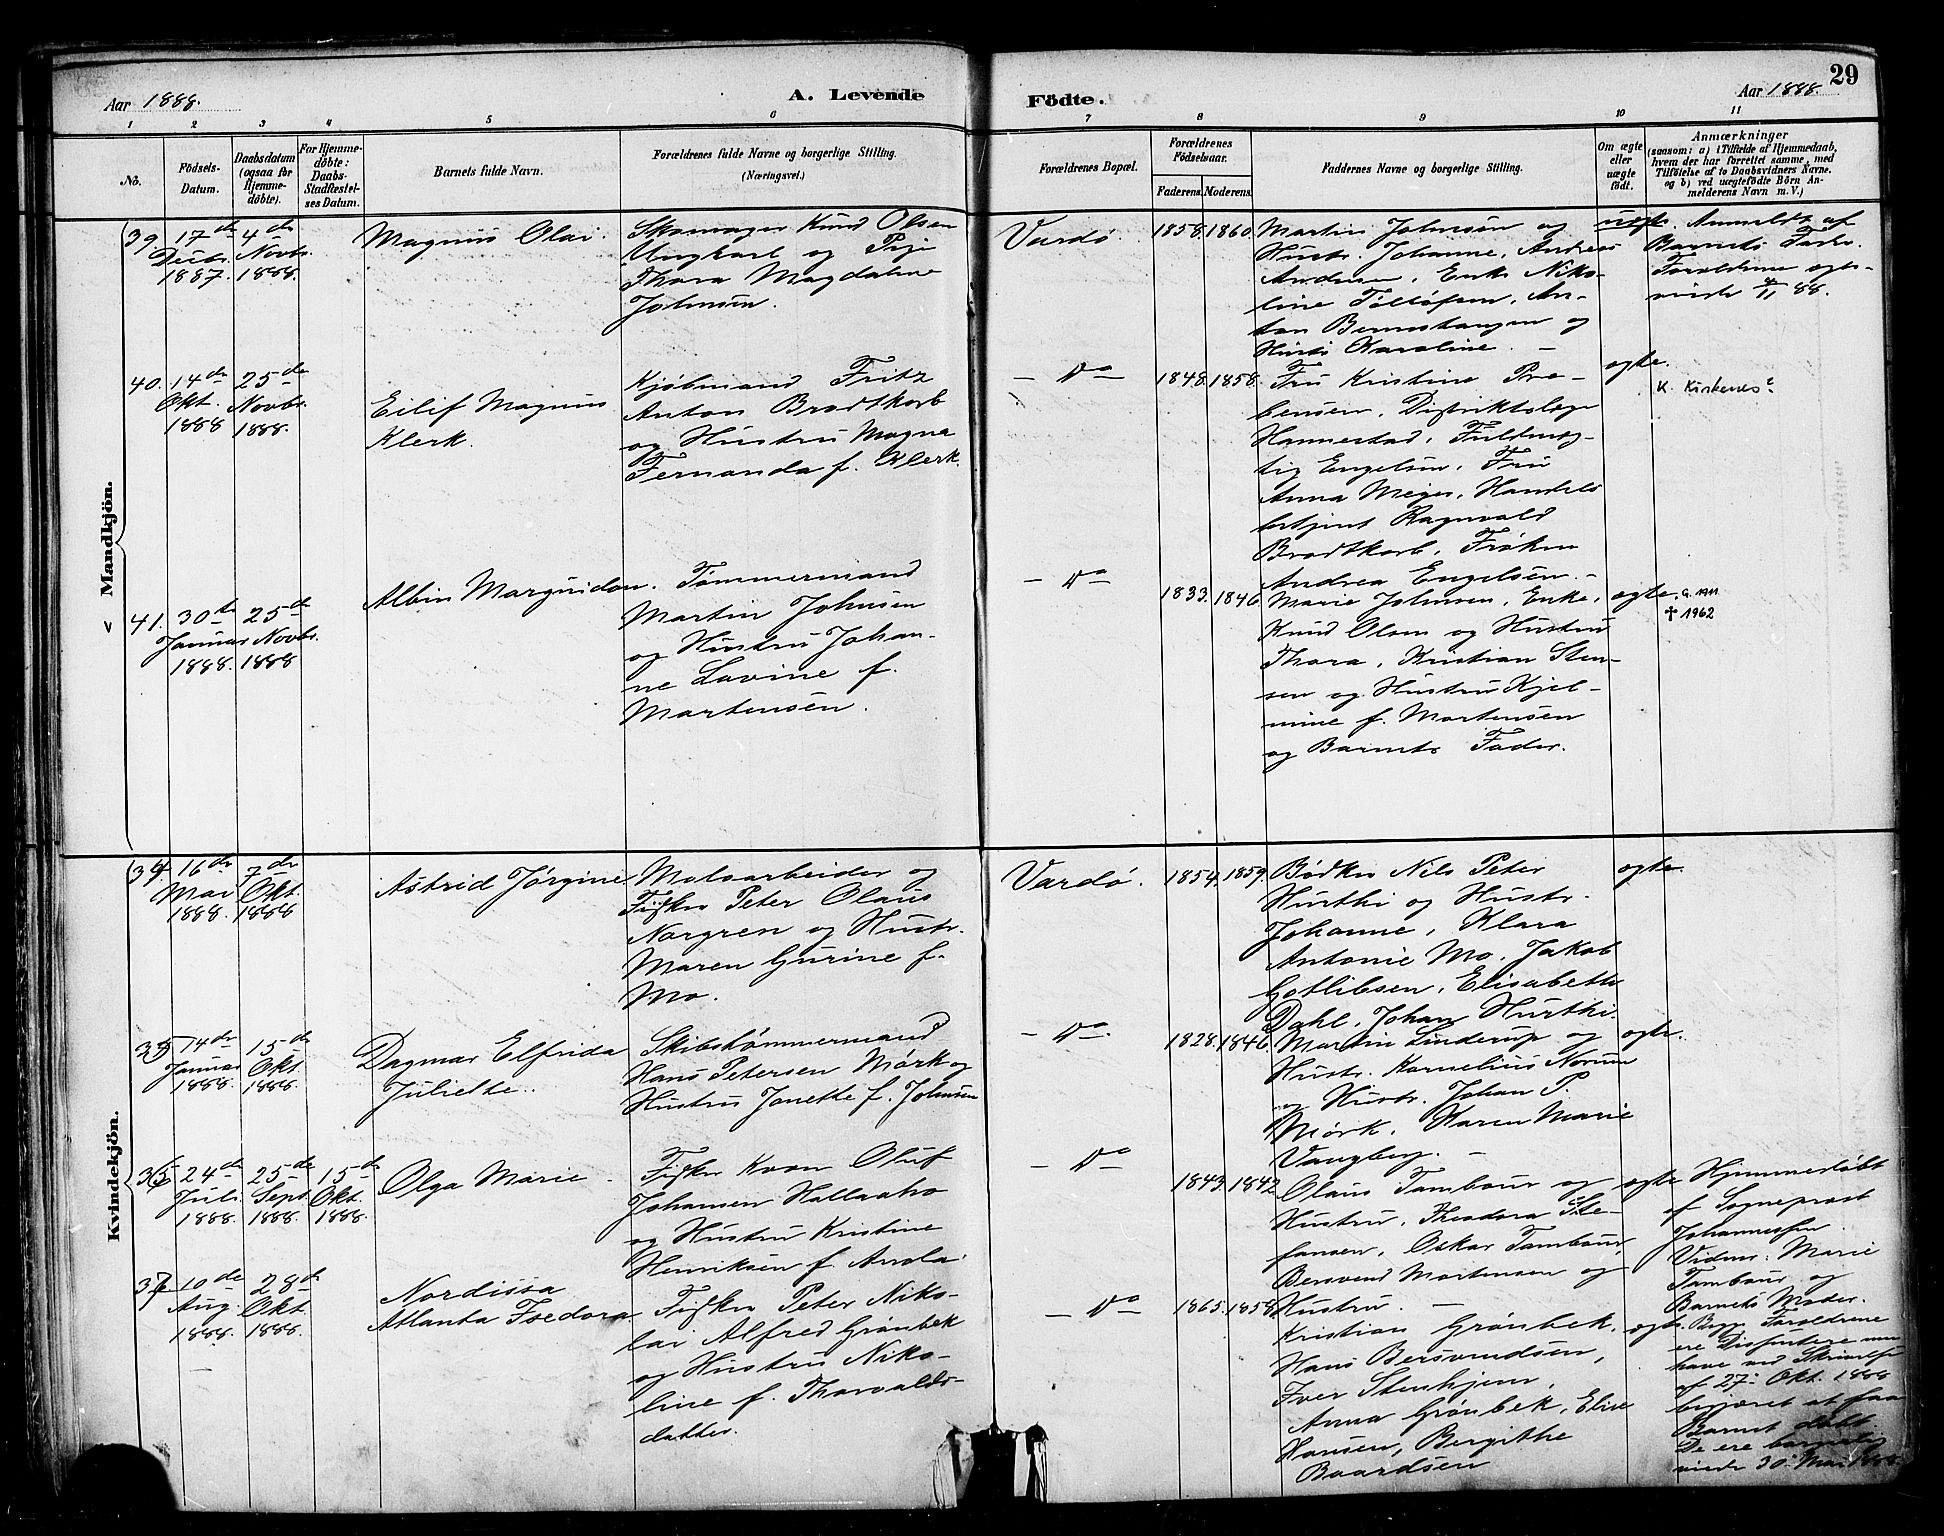 Aar 1888.
A. Levende
Födte.
Aar 1888.
29
1 2 3 4 5 6 7 8 9 10 11
No.
Födsels-
Datum.
Daabsdatum
(ogsaa for
Hjemme-
döbte).
For Hjemme-
döbte:
Daabs-
Stadfæstel-
ses Datum.
Barnets fulde Navn.
Forældrenes fulde Navne og borgerlige Stilling.
(Næringsvei.)
Forældrenes Bopæl.
Forældrenes
Födselsaar.
Faderens. Moderens.
Faddernes Navne og borgerlige Stilling.
Om ægte
eller
uægte
födt.
Anmærkninger
(saasom: a) i Tilfælde af Hjemmedaab,
hvem der har forrettet samme, med
Tilföielse af to Daabsvidners Navne.
og b) ved uægtefödte Börn An-
melderens Navn m. V.)
Mandkjön.
39
17de
Decbr.
1887.
4de
Novbr.
1888.
Magnus Olai.
Skomager Knud Olsen
Ungkarl og Pige
Thora Magdalene
Johnsen.
Vardö.
1858. 1860.
Martin Johnsen og
Hustr. Johanne, Andreas
Andersen, Enke Niko-
line Tollofsen, An-
ton Bennestangen og
Hustr. Karoline. —
uægte.
Anmeldt af
Barnets Fader.
Forældrene egte-
viede 4/11 88.
40.
14de
Okt.
1888
25de
Novbr.
1888.
Eilif Magnus
Klerk.
Kjöbmand Fritz
Anton Brodtkorb
og Hustru Magna
Fernanda f. Klerk.
— Do —
1848. 1858.
Fru Kristine Pre-
bensen, Distriktslæge
Hannestad, Fuldmæg-
tig Engelsen, Fru
Anna Meyer, Handels
betjent Ragnvald
Brodtkorb, Fröken
Andrea Engelsen. —
egte.
K. Kirkenes?
v
41.
30te
Januar
1888.
25de
Novbr.
1888
Albin Margudon.
Tömmermand
Martin Johnsen
og Hustru Johan-
ne Lovine f.
Martensen.
— Do —
1833. 1846.
Marie Johnsen, Enke,
Knud Olsen og Hustru
Thora, Kristian Sten-
sen og Hustru Kjel-
mine f. Mortensen
og Barnets Fader.
egte.
G. 1911
† 1962
Kvindekjön.
34.
16de
Mai
1888.
7de
Okt.
1888
Astrid Jörgine.
Moloarbeider og
Fisker Peter Olaus
Norgren og Hustr.
Maren Gurine f.
Mo.
Vardö.
1854. 1859.
Bödker Nils Peter
Hurthi og Hustr.
Johanne, Klara
Antonie Mo, Jakob
Gotlibsen, Elisabeth
Dahl, Johan Hurthi.
egte.
35
14de
Januar
1888.
15de
Okt.
1888.
Dagmar Elfrida
Juliette.
Skibstömmermand
Hans Petersen Mörk og
Hustru Janette f. Johnsen
— Do —
1828. 1846.
Martin Linderup og
Hustr. Kornelius Norum
og Hustr. Johan P.
Mörk, Karen Marie
Vangberg. —
egte.
36
24de
Juli
1888.
25de
Sept.
1888.
15de
Okt.
1888.
Olga Marie.
Fisker Kvæn Oluf
Johansen Hallaaho
og Hustru Kristine
Henriksen f. Arola.
— Do —
1843. 1842
Olaus Tambour og
Hustru, Theodora Ste-
fansen, Oskar Tambour,
Bersvend Mortensen og
Hustru. —
egte
Hjemmedöbt
af Sogneprest
Johannessen.
Vidner: Marie
Tambour og
Barnets Moder.
37
10de
Aug.
1888.
28de
Okt.
1888.
Nordissa
Atlanta Fredora.
Fisker Peter Niko-
lai Alfred Grönbek
og Hustru Niko-
line f. Thorvalds-
datter.
— Do —
1865. 1858.
Kristian Grönbek,
Hans Bersvendsen,
Iver Stenhjem,
Anna Grönbek, Elise
Hansen, Bergithe
Baardsen
egte.
Begge Forældrene
ere Dissentere men
have ved Skrivelse
af 27. Okt. 1888
begjæret at faa
Barnet döbt.
De ere borgerlig
viede 30. Mai